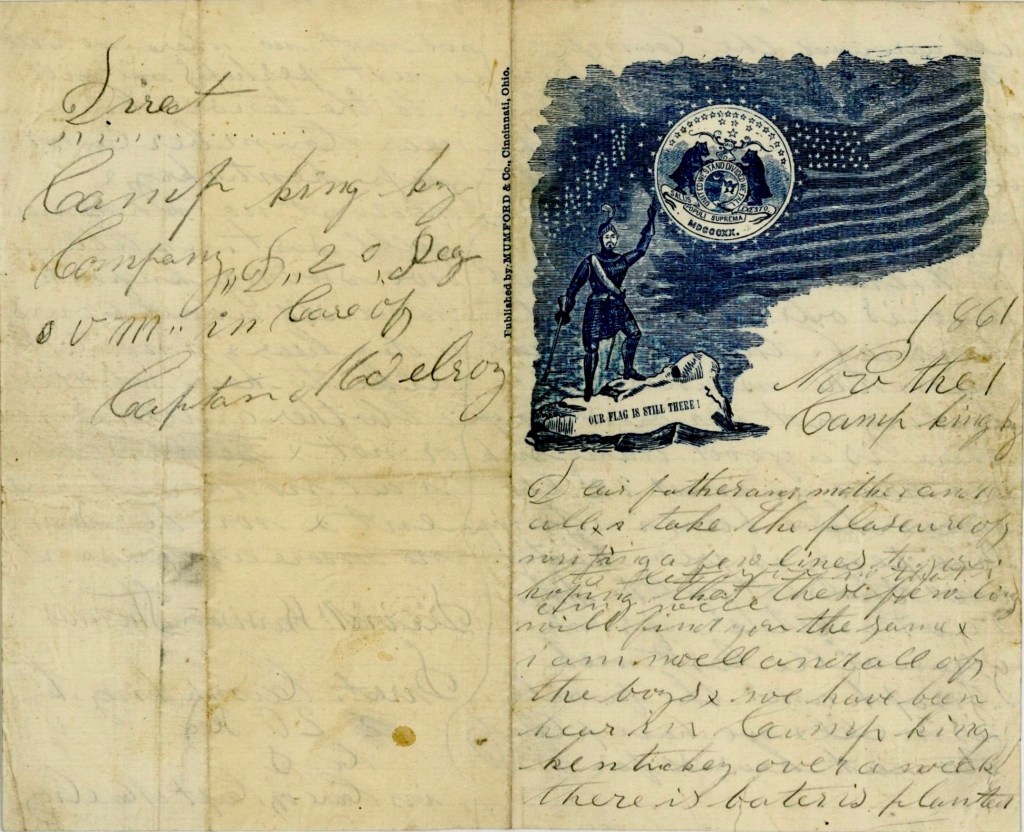 Direct
Camp king ky
Company "D" 2 Reg
o v m" in Care of
Captan McElroy
Published by MUMFORD & Co., Cincinnati, Ohio.
UNITED WE STAND DIVIDED WE FALL
SALUS POPULI SUPREMA LEX ESTO
MDCCCXX.
OUR FLAG IS STILL THERE!
1861
Nov the 1
Camp king ky
Dear father and mother and
all x i take the plaseure of
writing a few lines to
let you no that i
am well
hoping that these few lins
will find you the same x
i am well and all of
the boys x we have been
hear in Camp king
kentuckey over a week
there is bateris planted